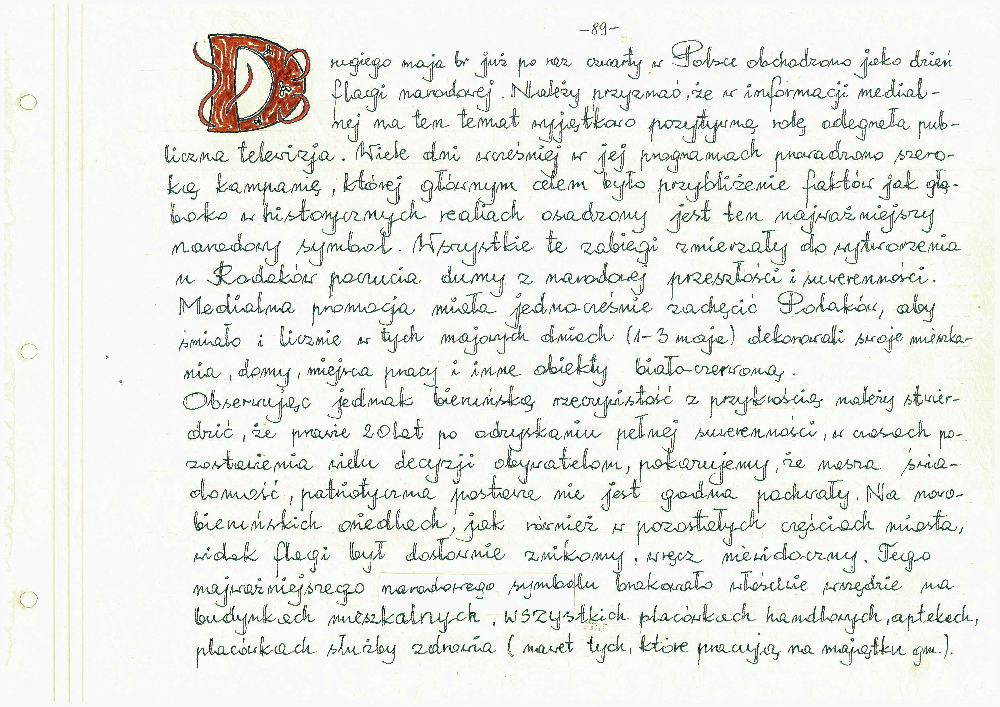 -89-
Drugiego maja br już po raz czwarty w Polsce obchodzono jako dzień
flagi narodowej. Należy przyznać, że w informacji medial-
nej na ten temat wyjątkowo pozytywną rolę odegrała pub-
liczna telewizja. Wiele dni wcześniej w jej programach prowadzono szero-
ką kampanię, której głównym celem było przybliżenie faktów jak głę-
boko w historycznych realiach osadzony jest ten najważniejszy
narodowy symbol. Wszystkie te zabiegi zmierzały do wytworzenia
u Rodaków poczucia dumy z narodowej przeszłości i suwerenności.
Medialna promocja miała jednocześnie zachęcić Polaków, aby
śmiało i licznie w tych majowych dniach (1-3 maja) dekorowali swoje mieszka-
nia, domy, miejsca pracy i inne obiekty biało-czerwoną.
Obserwując jednak bieruńską rzeczywistość z przykrością należy stwier-
dzić, że prawie 20 lat po odzyskaniu pełnej suwerenności, w czasach po-
zostawienia wielu decyzji obywatelom, pokazujemy, że nasza świa-
domość, patriotyczna postawa nie jest godna pochwały. Na nowo-
bieruńskich osiedlach, jak również w pozostałych częściach miasta,
widok flagi był dosłownie znikomy, wręcz niewidoczny. Tego
najważniejszego narodowego symbolu brakowało właściwie wszędzie na
budynkach mieszkalnych, wszystkich placówkach handlowych, aptekach,
placówkach służby zdrowia (nawet tych, które pracują na majątku gm.).